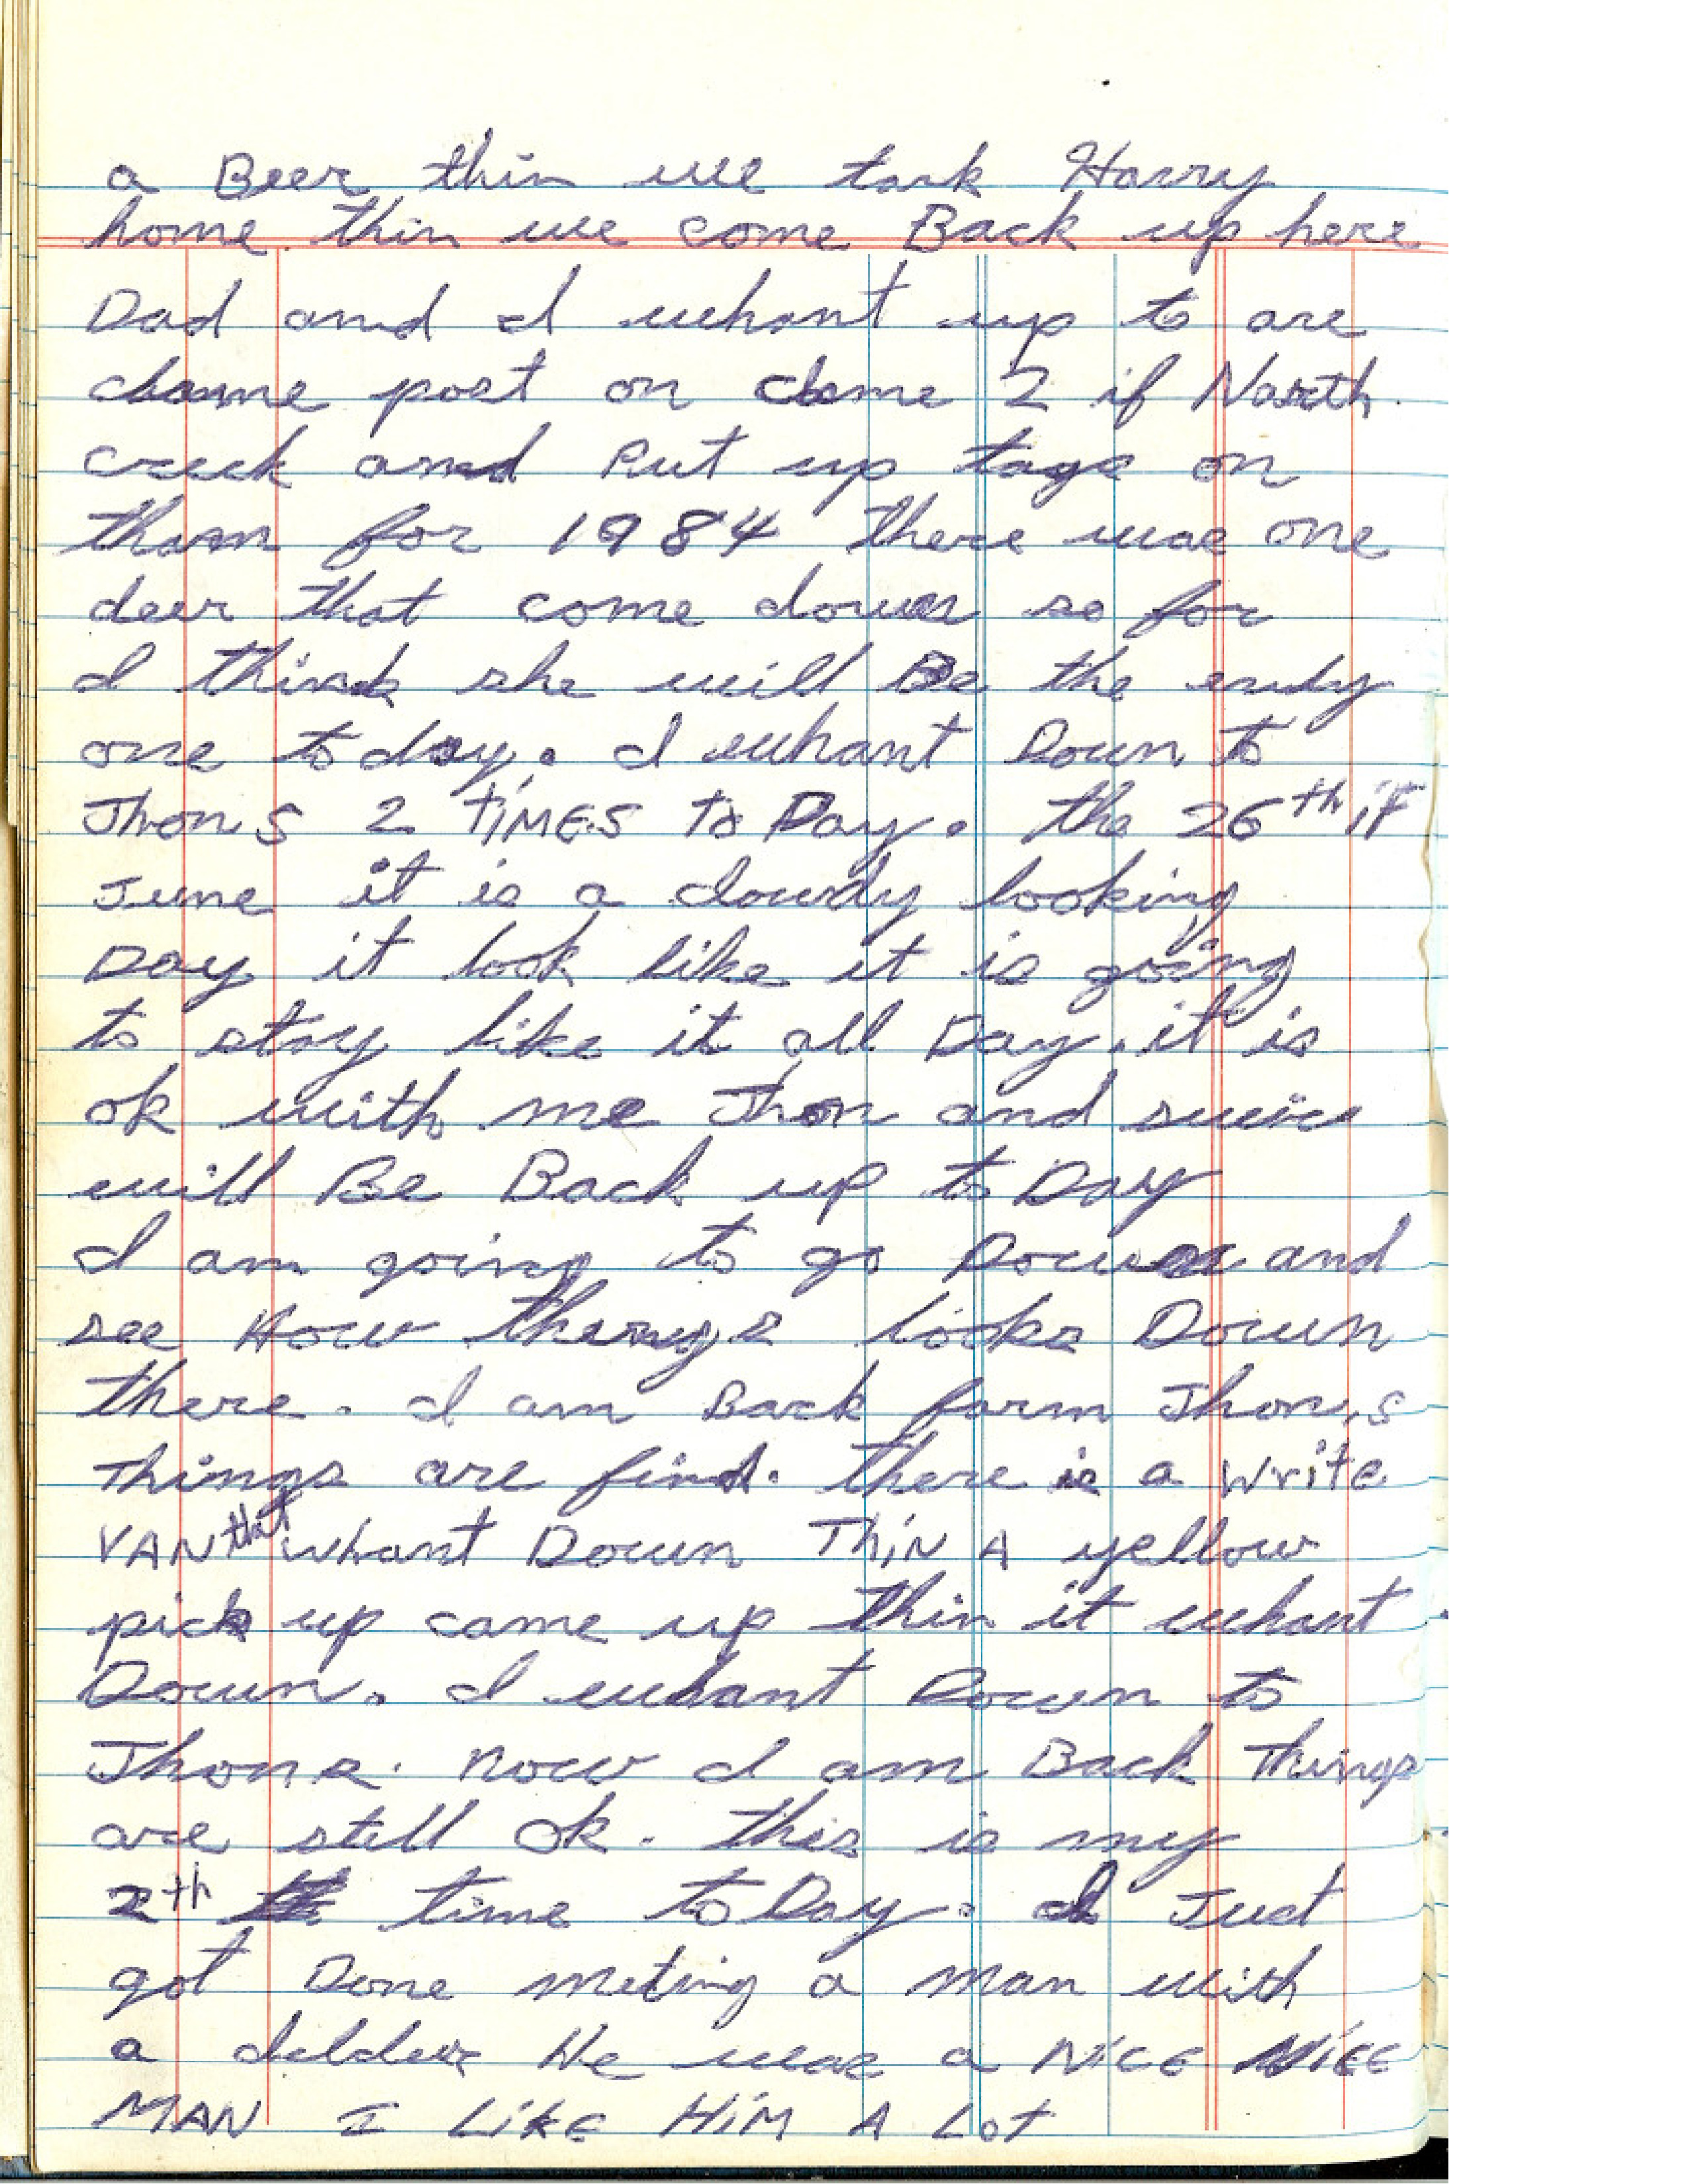 a Beer thin we tark Harry
home thin we come Back up here
Dad and I whant up to are
clame post on clame 2 if North
creek and Put up tags on
tham for 1984 there was one
deer that come down so for
I think she will Be the enly
one to day. I whant Down to
Jhon's 2 TiMES To Day. the 26th if
June it is a cloudy looking
Day it look like it is going
to stay like it all Day. it is
ok with me Jhon and
will Be Back up to Day
I am going to go Down and
see How things looks Down
there. I am Back farm Jhon,s
Things are find. there is a write
VAN that whant Down ThiN A yellow
pick up came up thin it whant
Down. I whant Down to
Jhons. now I am Back Things
are still ok. this is my
2th time to Day. I Just
got Done meting a man with
a He was a NiCE NiCE
MAN I LiKE HiM A LoT